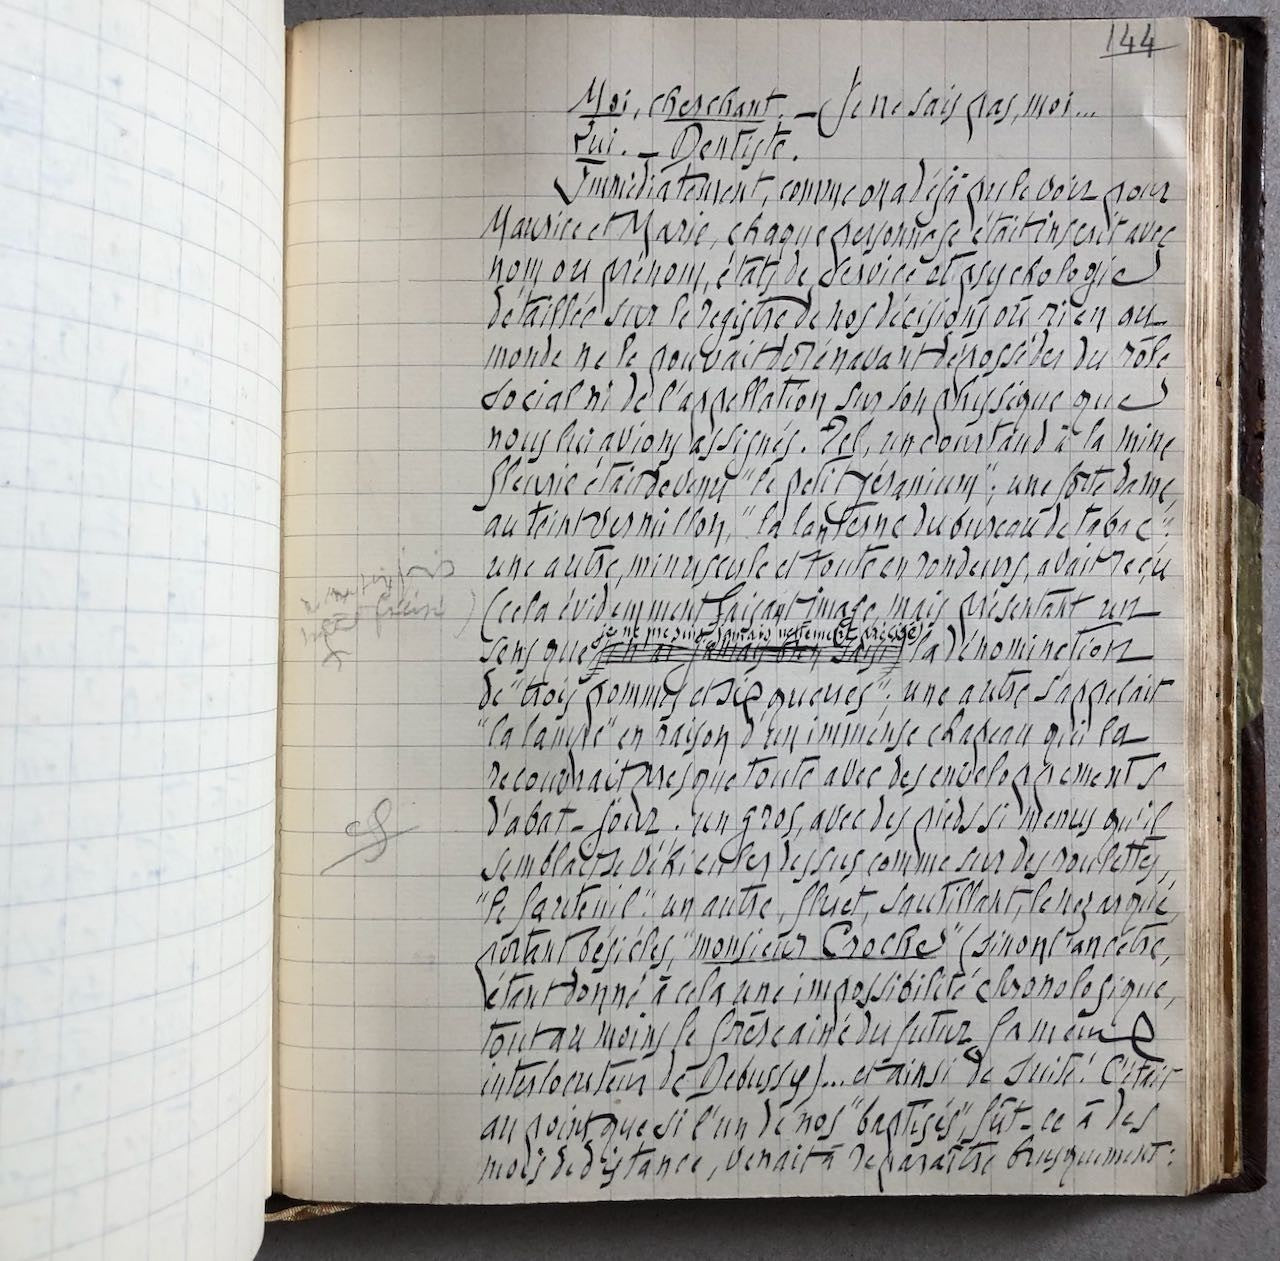 144
Moi, cherchant. – Je ne sais pas, moi...
Lui. – Dentiste.
Immédiatement, comme on a déjà pu le voir pour
Maurice et Marie, chaque personne se était inscrit avec
nom ou prénom, états de service et psychologie
détaillée sur le registre de nos décisions où rien au
monde ne le pouvait dorénavant déposséder du rôle
social ni de l'appellation sur son physique que
nous lui avions assignés. Tel, un courtaud à la mine
fleurie était devenu "le petit géranium"; une forte dame,
au teint vermillon, "la lanterne du bureau de tabac";
une autre, minuscule et toute en rondeurs, avait reçu
(cela évidemment faisant image mais présentant un
je ne me suis jamais nettement précisé)
sens que la dénomination
de "trois pommes et dix queues"; une autre s'appelait
"la lampe" en raison d'un immense chapeau qui la
recouvrait presque toute avec des enveloppements
d'abat-jour. un gros, avec des pieds si menus qu'il
semblait se véhiculer dessus comme sur des roulettes,
"le fauteuil". un autre, fluet, sautillant, le nez arqué,
portant bésicles, "monsieur Croche" (sinon l'ancêtre,
étant donné à cela une impossibilité chronologique,
tout au moins le frère aîné du futur fameux
interlocuteur de Debussy)... et ainsi de suite! C'était
au point que si l'un de nos "baptisés", fût-ce à des
mois de distance, venait à reparaître brusquement: